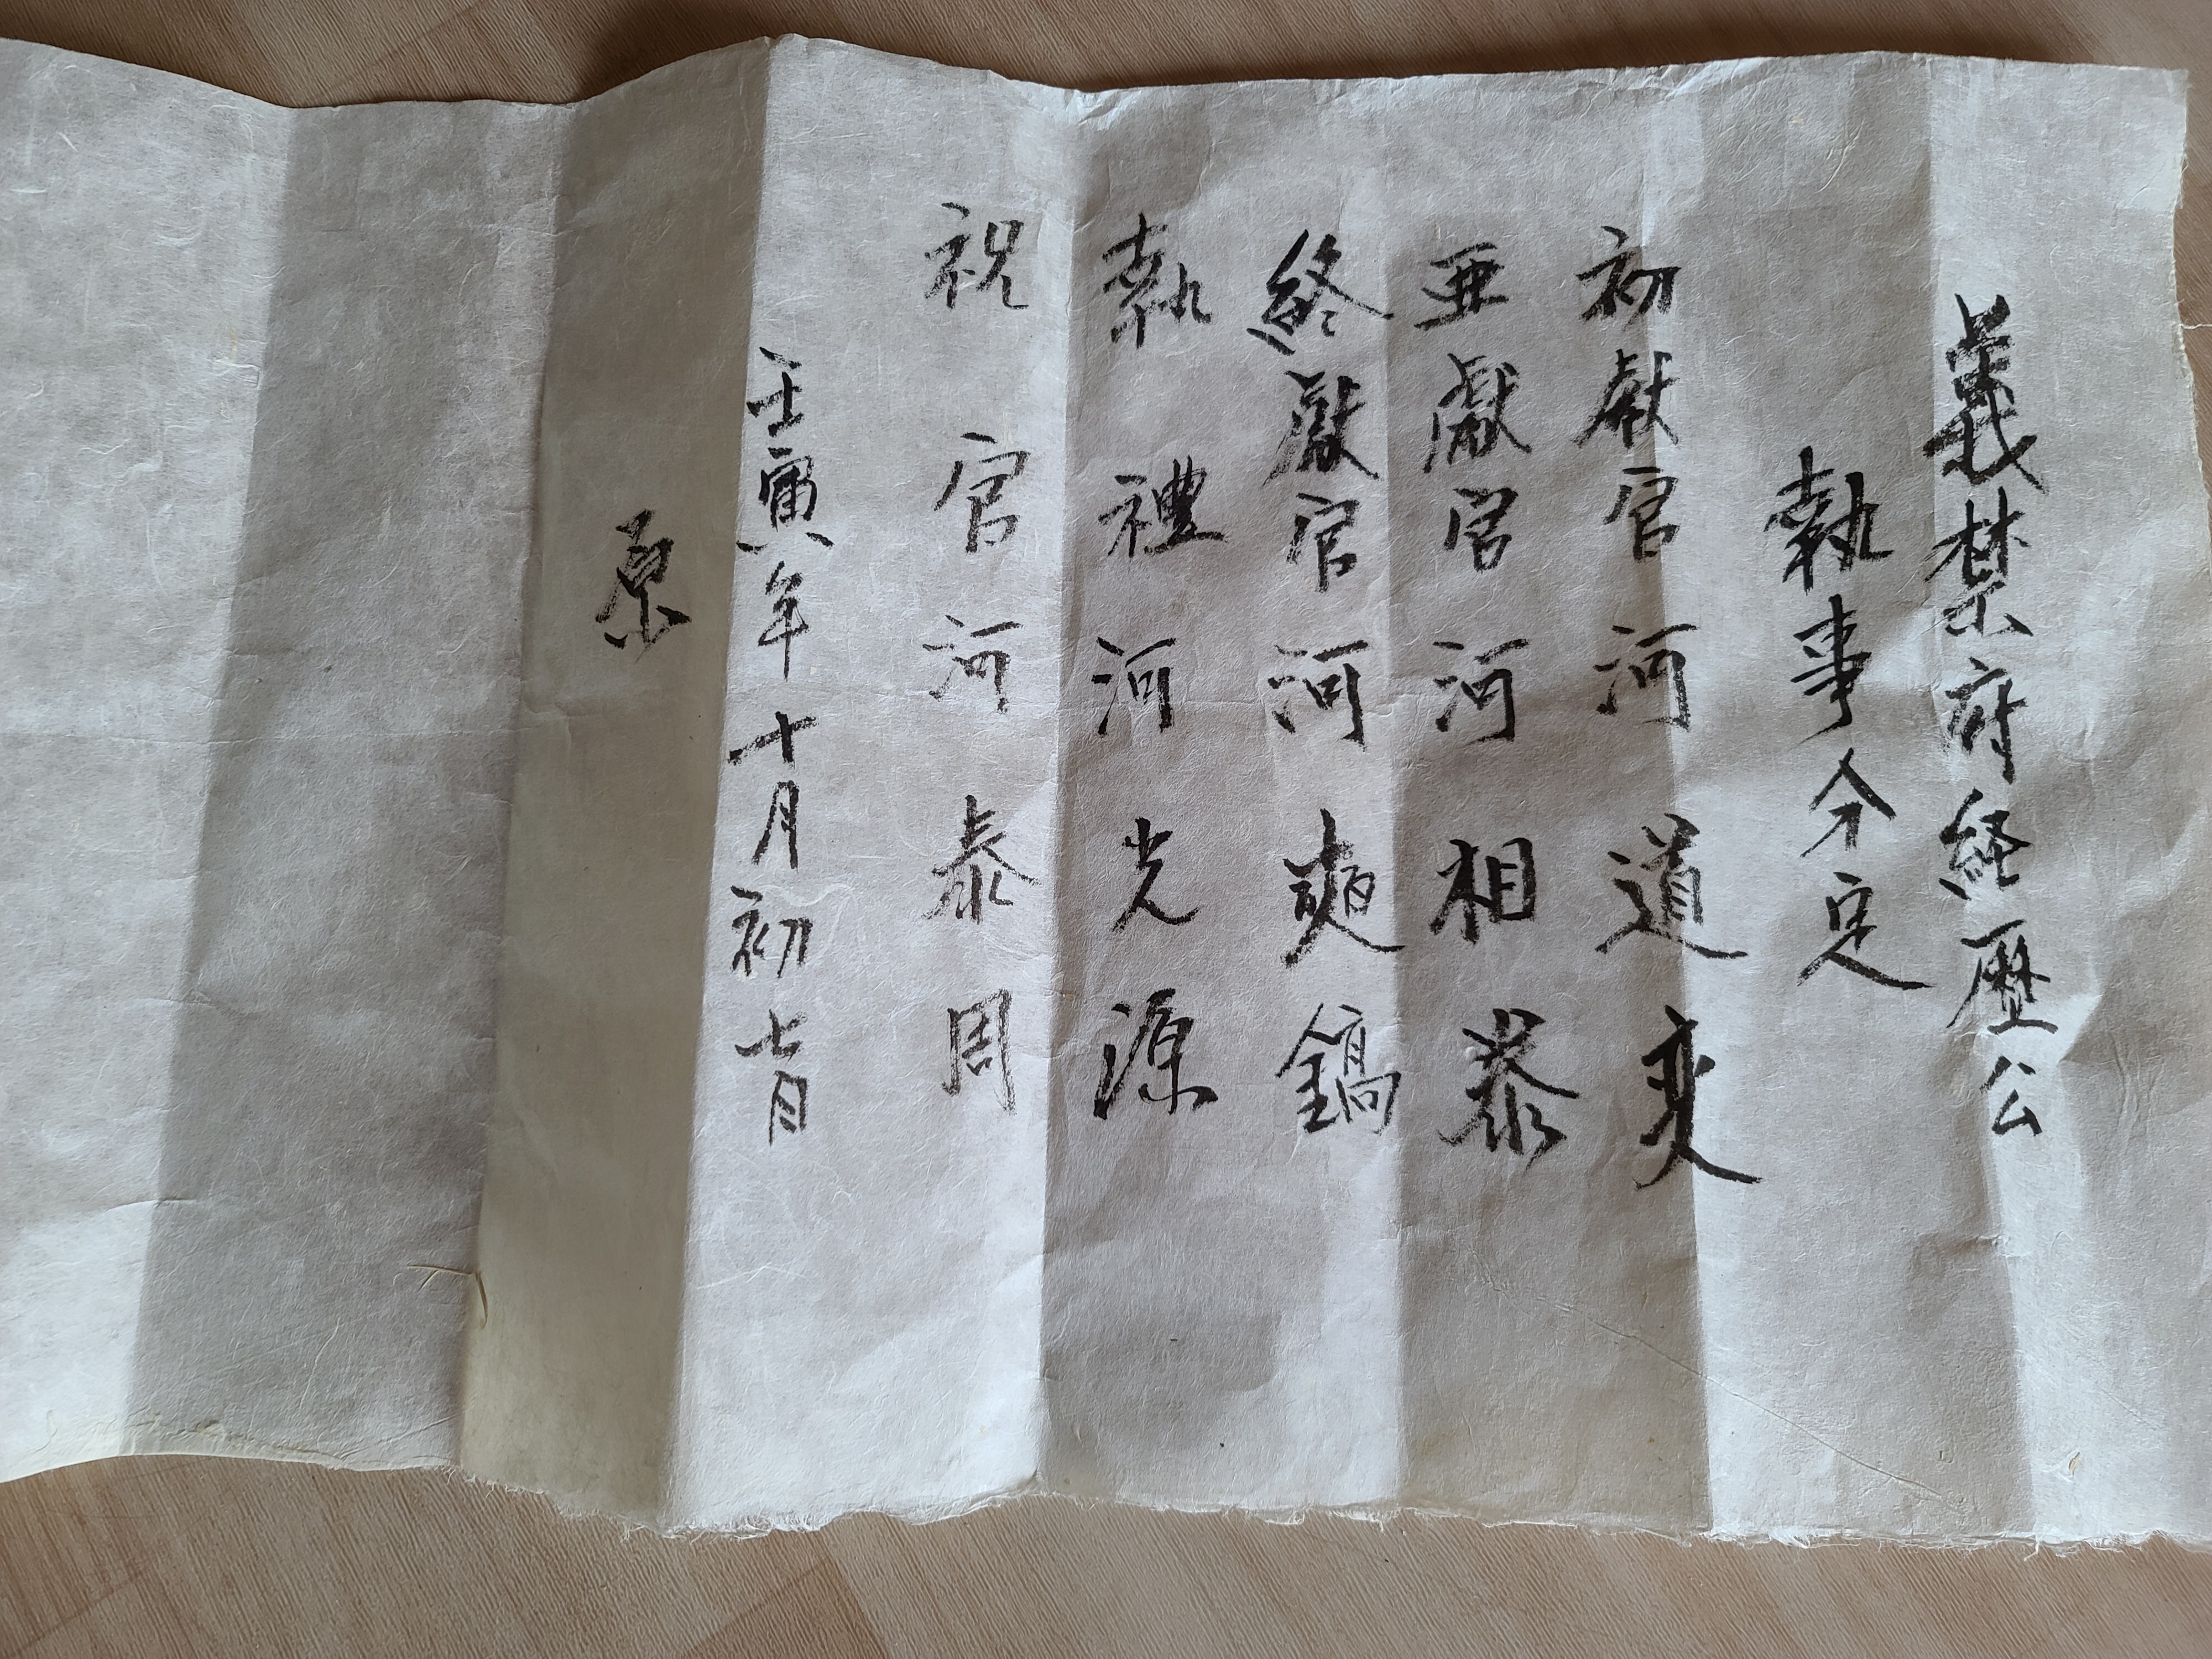 義禁府経歷公
執事分定
初獻官河道奕
亜獻官河相泰
終獻官河奭鎬
執禮河光源
祝官河泰周
壬寅年十月初七日
原